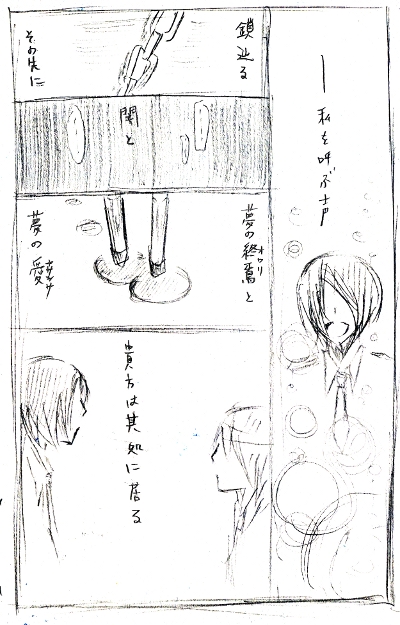 ―私を呼ぶ声
鎖辿る
その先に
闇と
夢の終焉と
オワリ
夢の愛
貴方は其処に居る